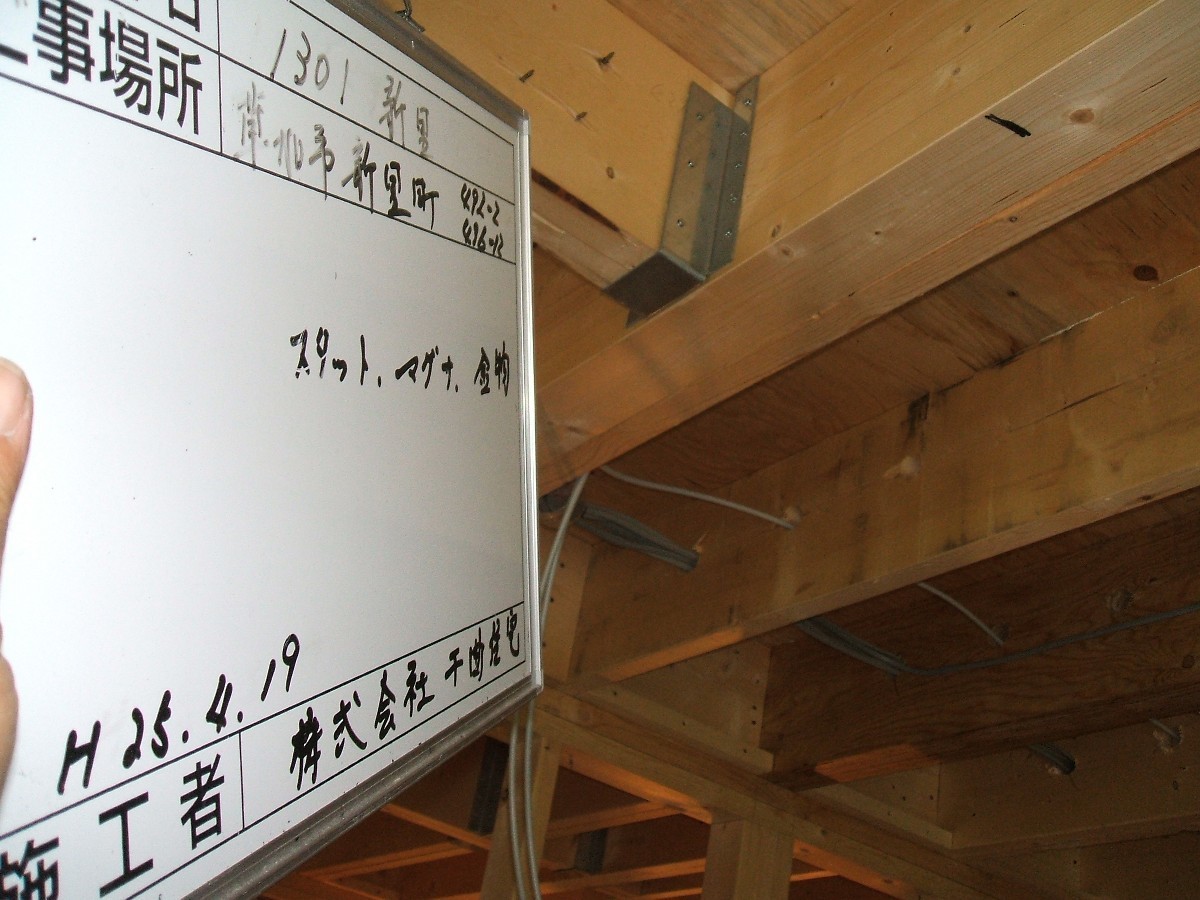 工事場所
1301 新里
市新里町 492-2
スリット、マグナ、金物
H25.4.19
施工者
株式会社 千曲住宅